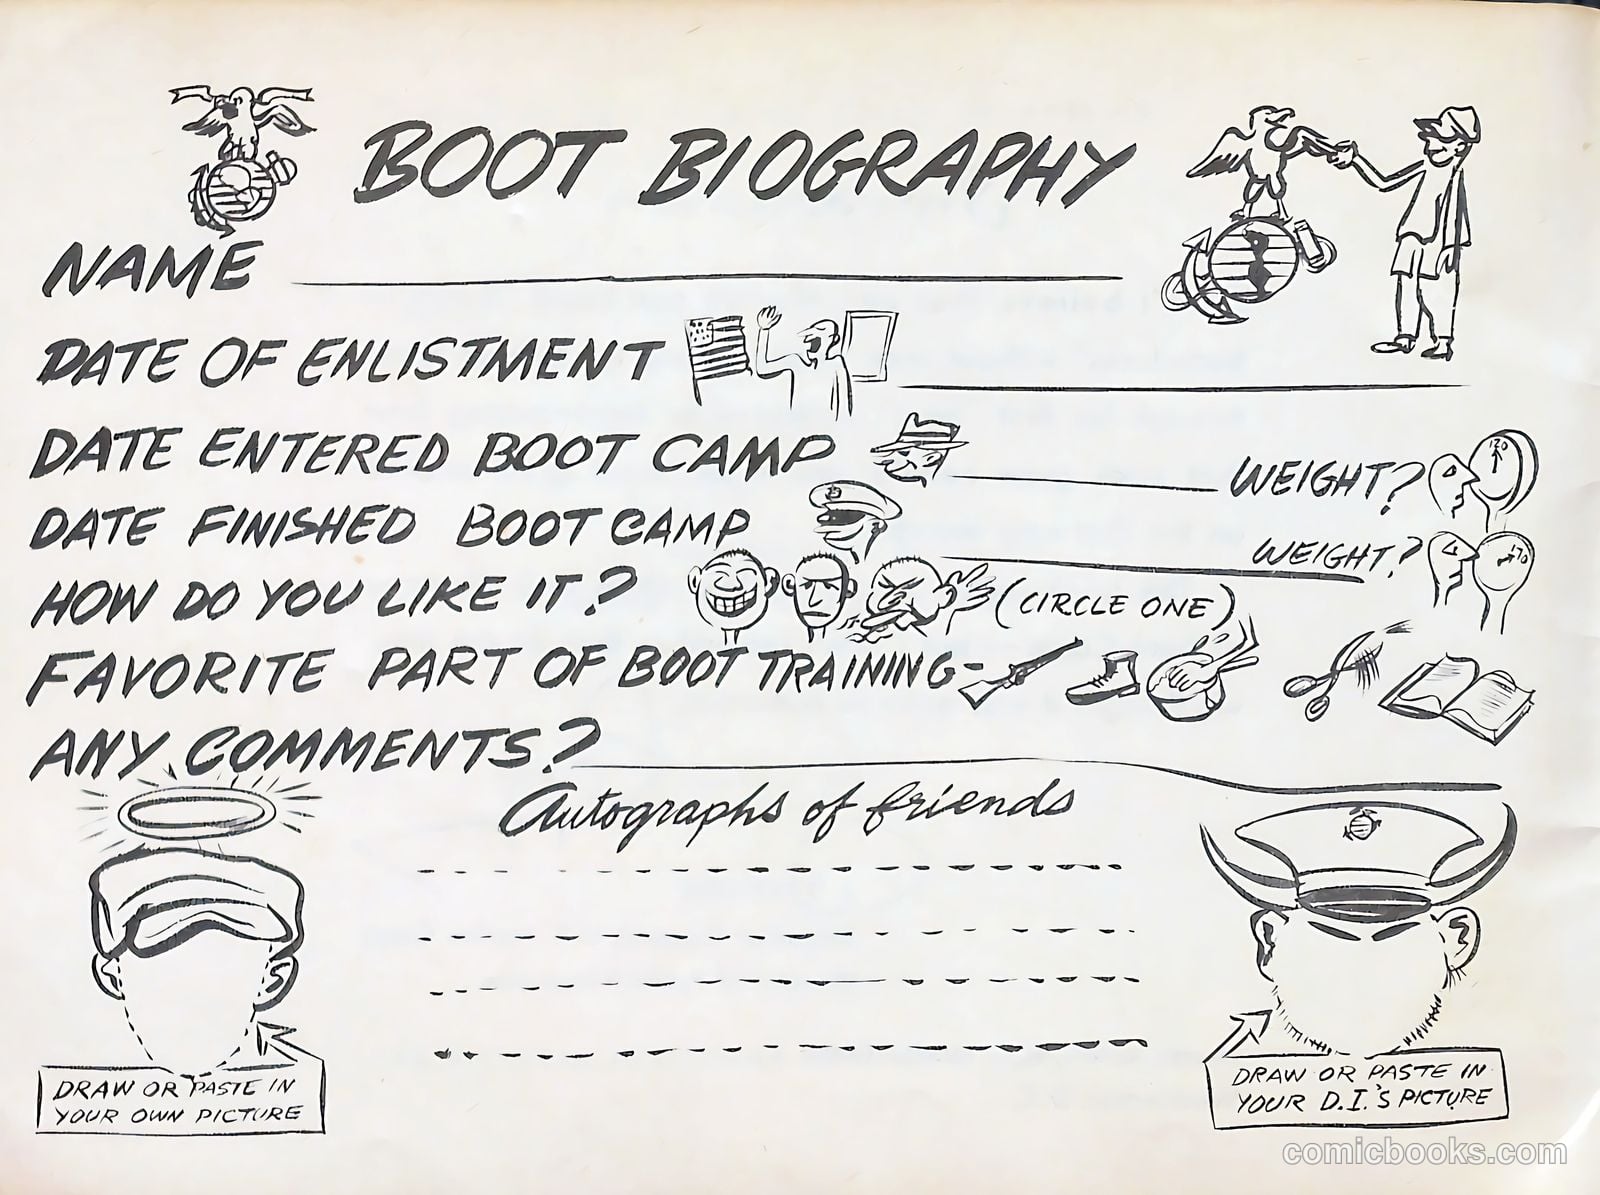 BOOT BIOGRAPHY
NAME
DATE OF ENLISTMENT
DATE ENTERED BOOT CAMP
WEIGHT?
120
DATE FINISHED BOOT CAMP
WEIGHT?
170
HOW DO YOU LIKE IT?
(CIRCLE ONE)
FAVORITE PART OF BOOT TRAINING-
ANY COMMENTS?
Autographs of friends
DRAW OR PASTE IN
YOUR OWN PICTURE
DRAW OR PASTE IN
YOUR D.I.'S PICTURE
comicbooks.com